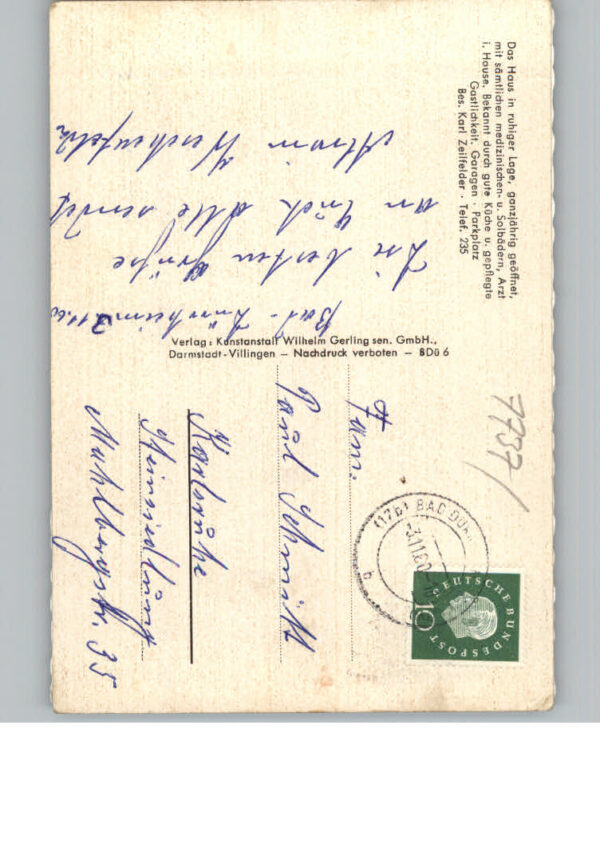 Das Haus in ruhiger Lage, ganzjährig geöffnet,
mit sämtlichen medizinischen- u. Solbädern, Arzt
i. Hause. Bekannt durch gute Küche u. gepflegte
Gastlichkeit. Garagen · Parkplatz
Bes. Karl Zeilfelder · Telef. 235
Bad-Dürrheim
Die besten Grüße
an Euch alle sendet
Verlag: Kunstanstalt Wilhelm Gerling sen. GmbH.,
Darmstadt-Villingen – Nachdruck verboten – BDü 6
7737/
(17b) BAD DÜR
3.11.60
b
DEUTSCHE BUNDESPOST
10
Fam.
Paul Schmitt
Karlsruhe
Heimsiedlung
Muhlbergstr. 35